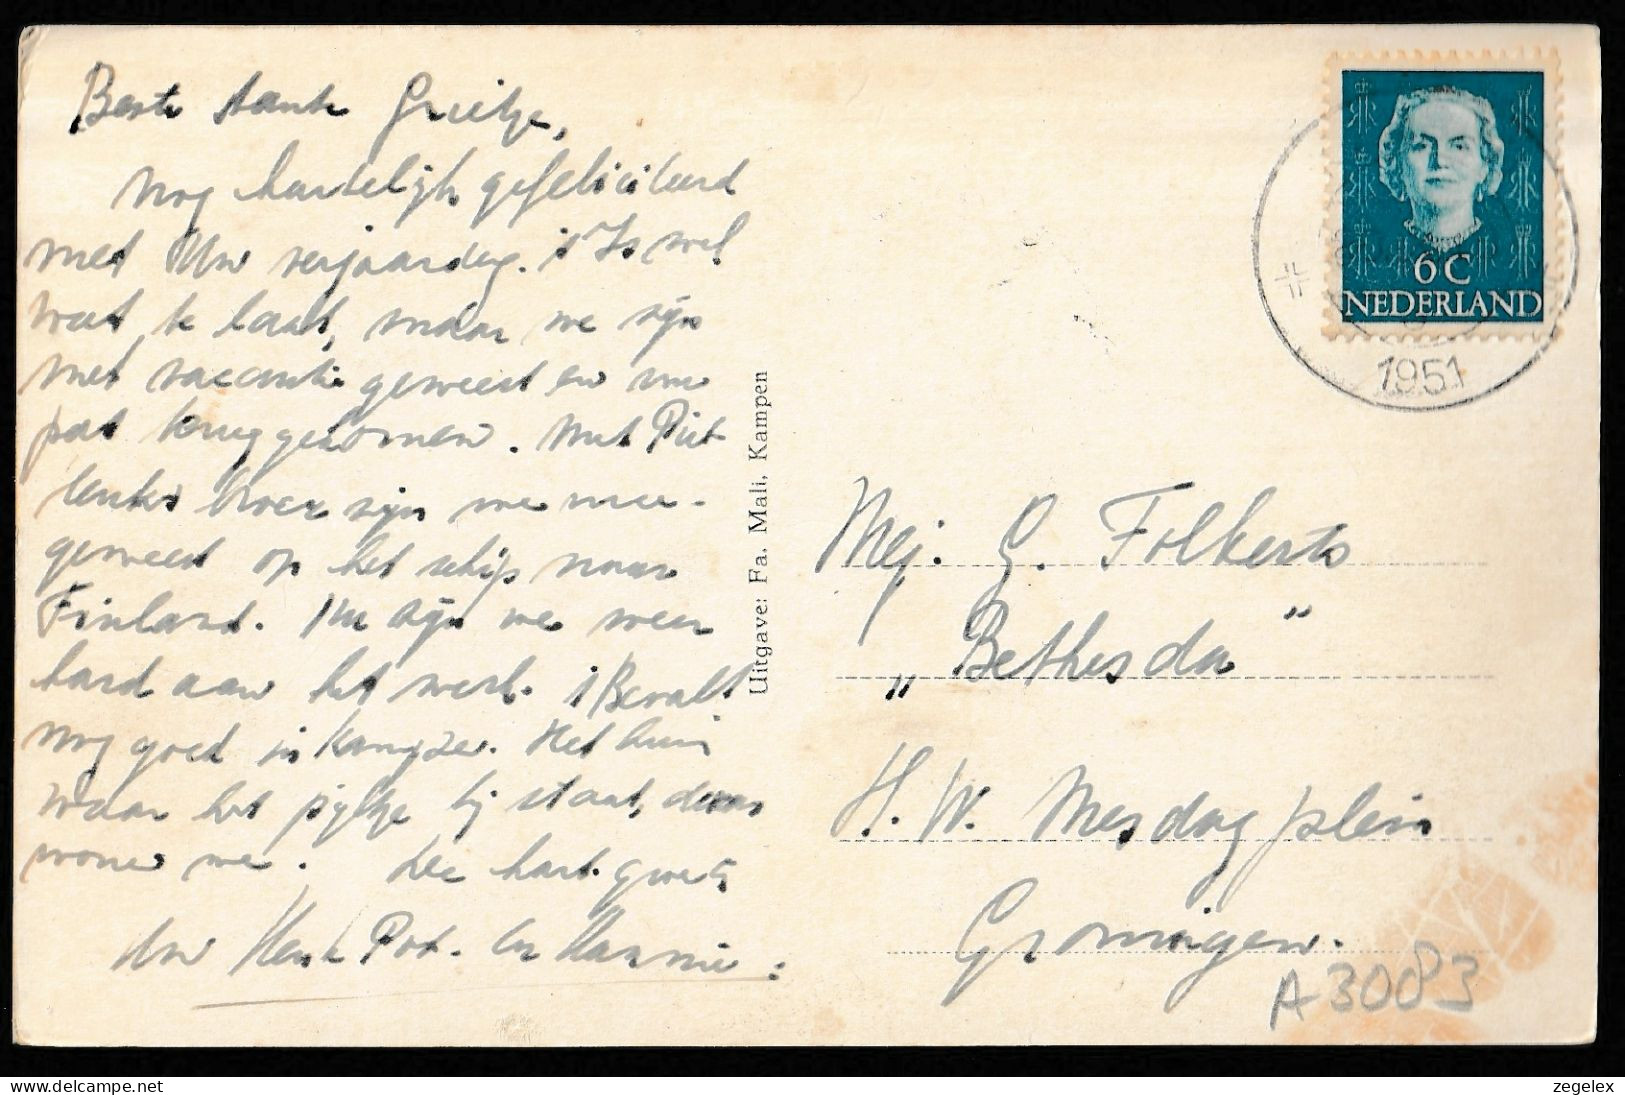 Beste tante Grietje,
Nog hartelijk gefeliciteerd
met Uw verjaardag. 't Is wel
wat te laat, maar we zijn
met vacantie geweest en nu
pas teruggekomen. Met Piet
zijn we mee-
geweest op het schip naar
Finland. Nu zijn we weer
hard aan het werk. 't Bevalt
nog goed in Kampen. Het huis
waar het pijltje bij staat, daar
wonen we. De hart. groeten
Uw Henk Pot. en Hannie.
Uitgave: Fa. Mali, Kampen
6 C
NEDERLAND
1951
Mej. G. Folkerts
„Bethesda"
H. W. Mesdagplein
Groningen.
A3083
zegelex